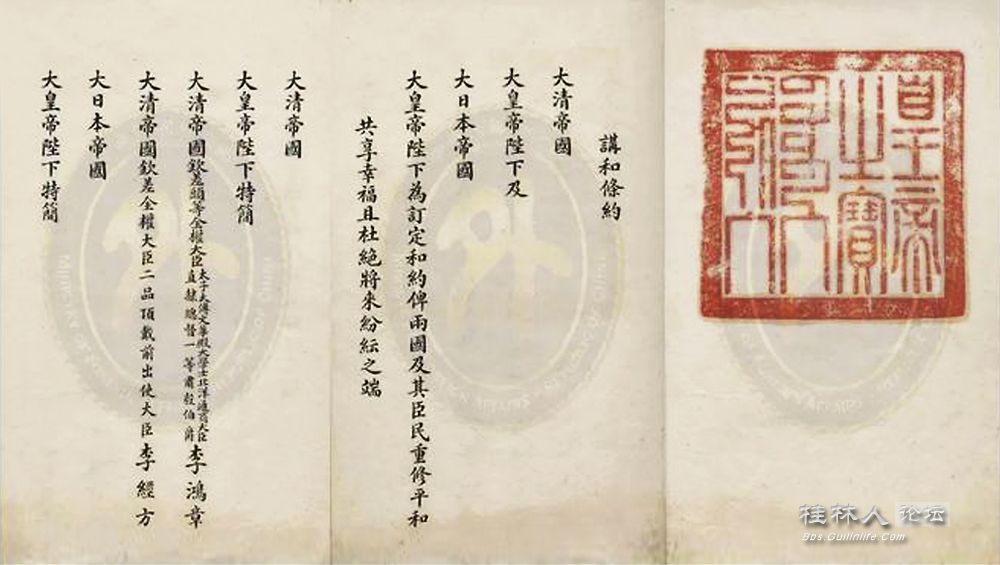 皇帝之寶
講和條約
大清帝國
大皇帝陛下及
大日本帝國
大皇帝陛下為訂定和約俾兩國及其臣民重修平和
共享幸福且杜絕將來紛紜之端
大清帝國
大皇帝陛下特簡
大清帝國欽差頭等全權大臣太子太傅文華殿大學士北洋通商大臣直隸總督一等肅毅伯爵李鴻章
大清帝國欽差全權大臣二品頂戴前出使大臣李經方
大日本帝國
大皇帝陛下特簡
桂林人论坛
Bbs.Guilinlife.Com